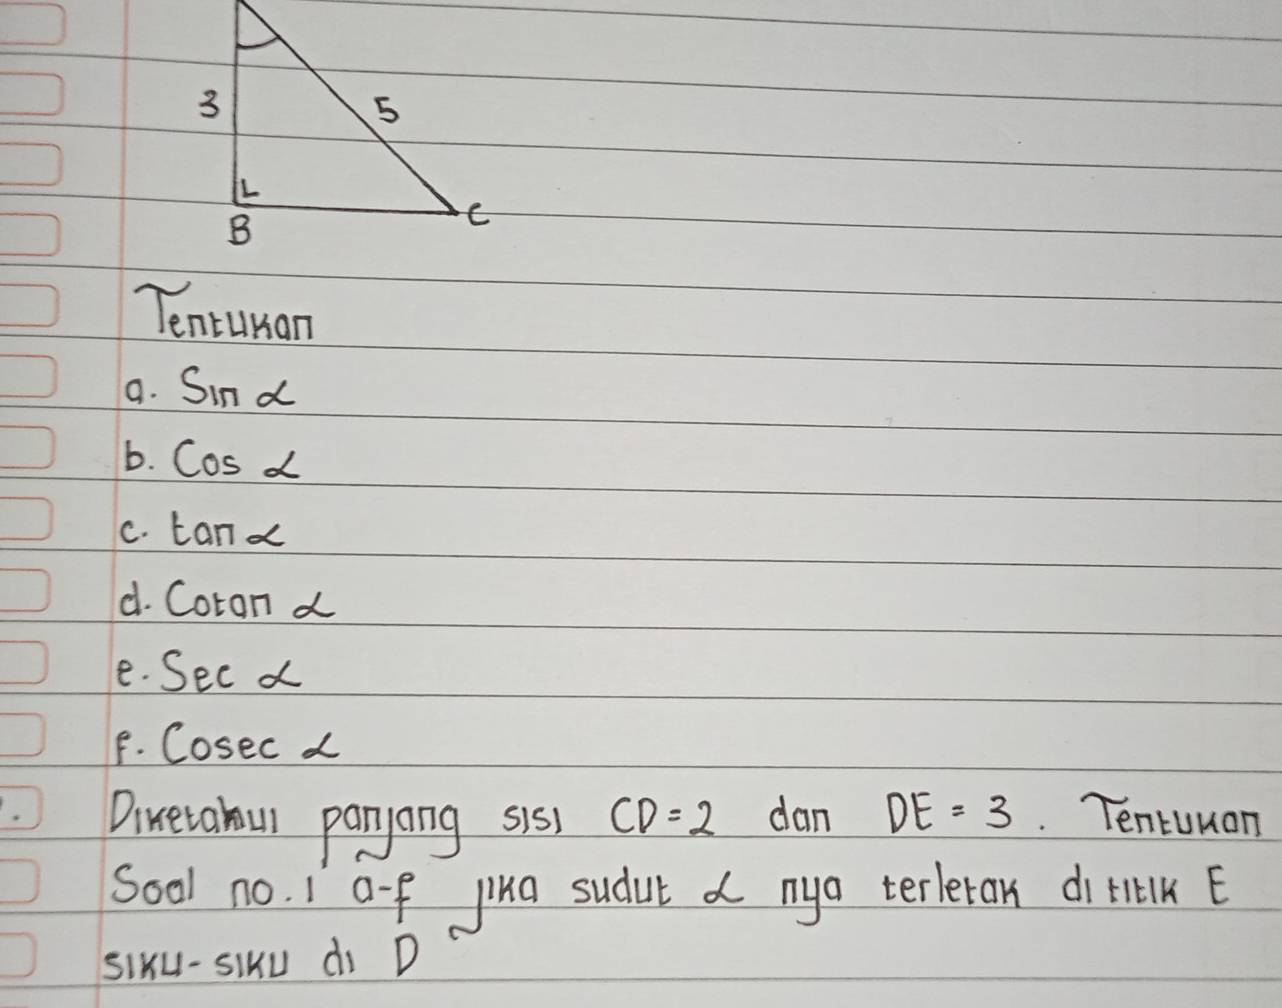 3
5
B
C
Tentukan
a. Sin α
b. Cos α
c. tan α
d. Cotan α
e. Sec α
f. Cosec α
Diketahui panjang sisi CD = 2 dan DE = 3. Tentukan
Soal no. 1 a-f jika sudut α nya terletak di titik E
siku-siku di D